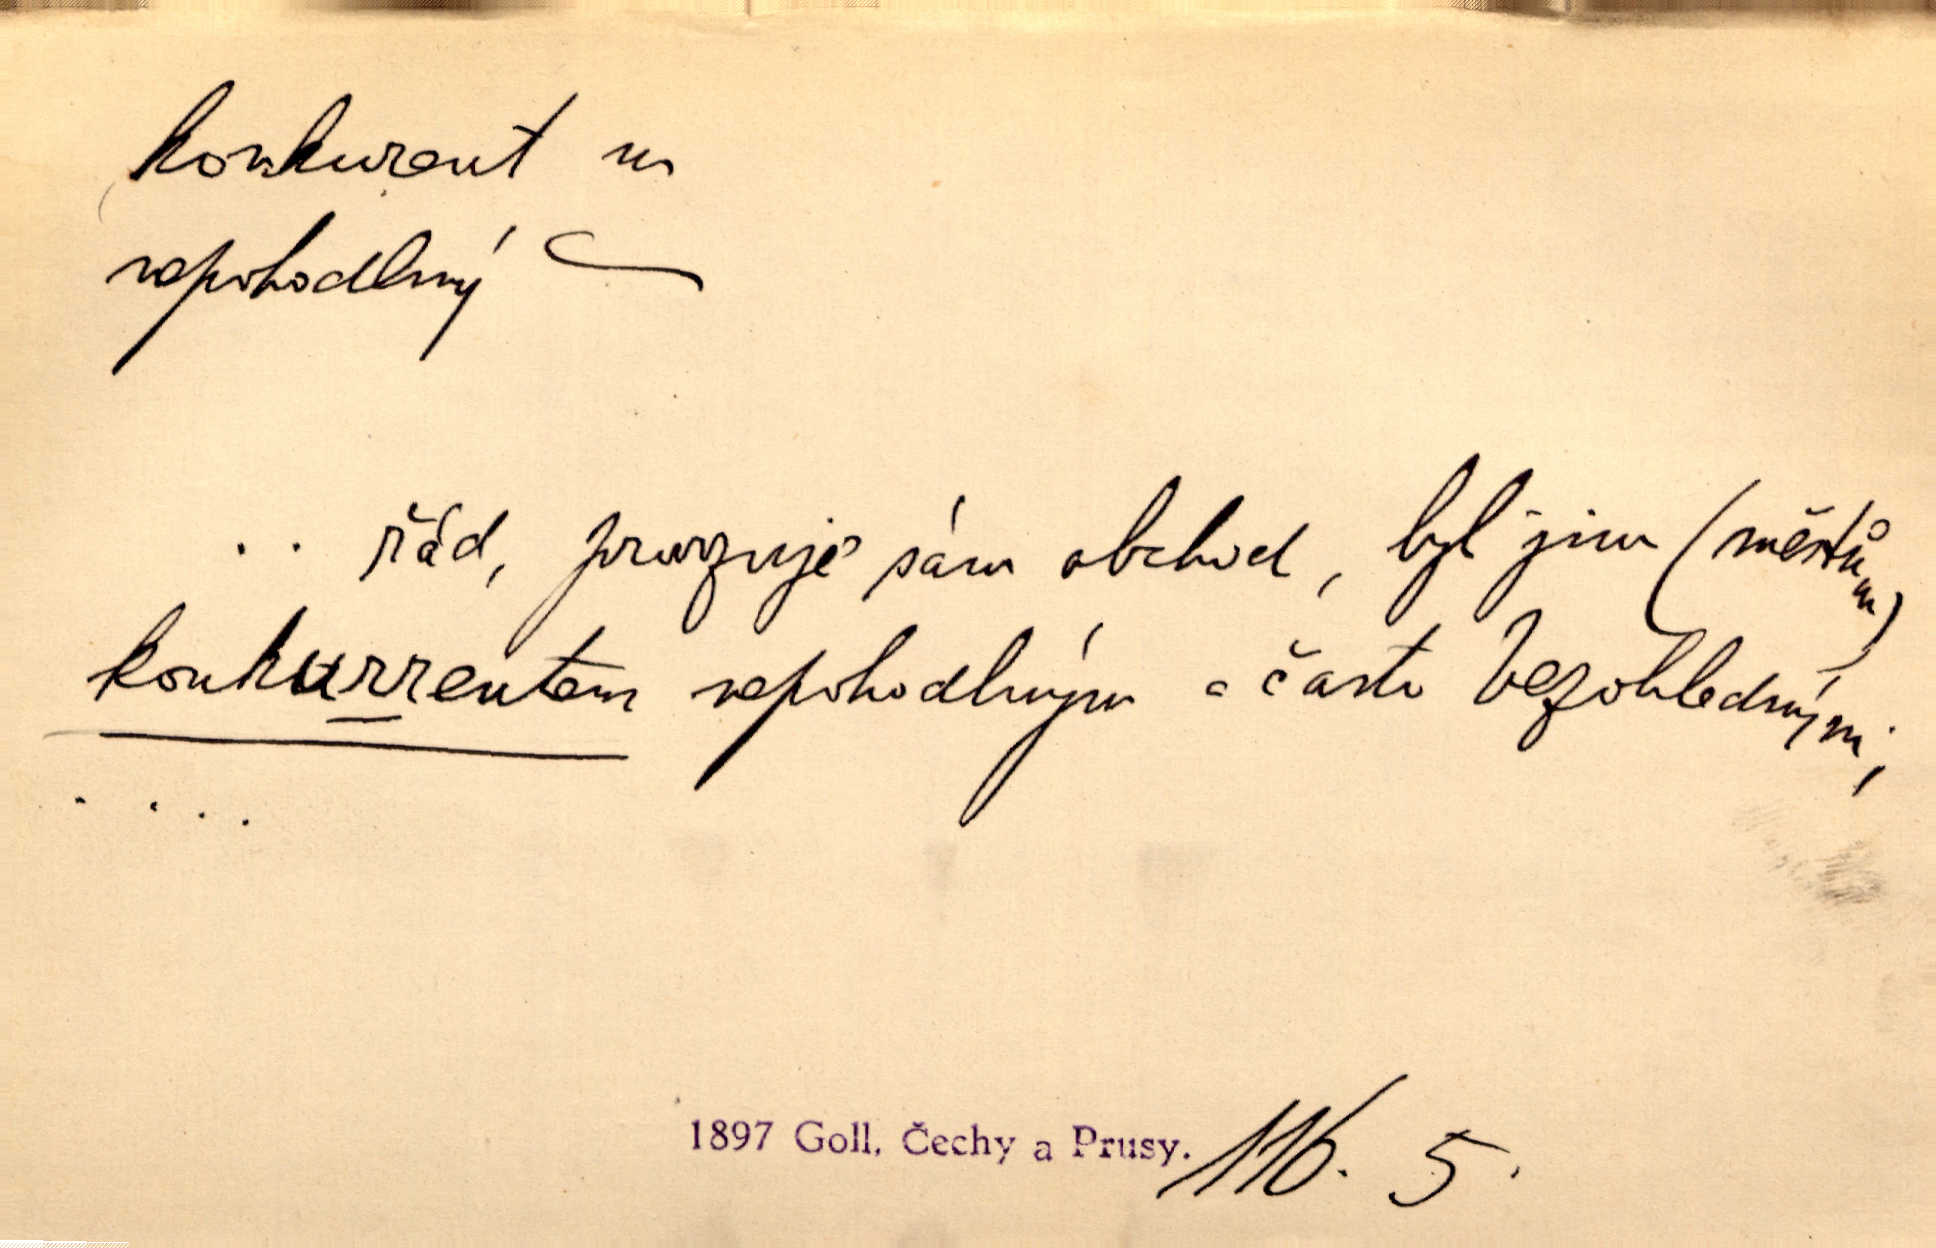 konkurent m
nepohodlný
.. řád, provozuje sám obchod, byl jim (městům)
konkurrentem nepohodlným a často bezohledným;
....
1897 Goll, Čechy a Prusy. 116. 5.